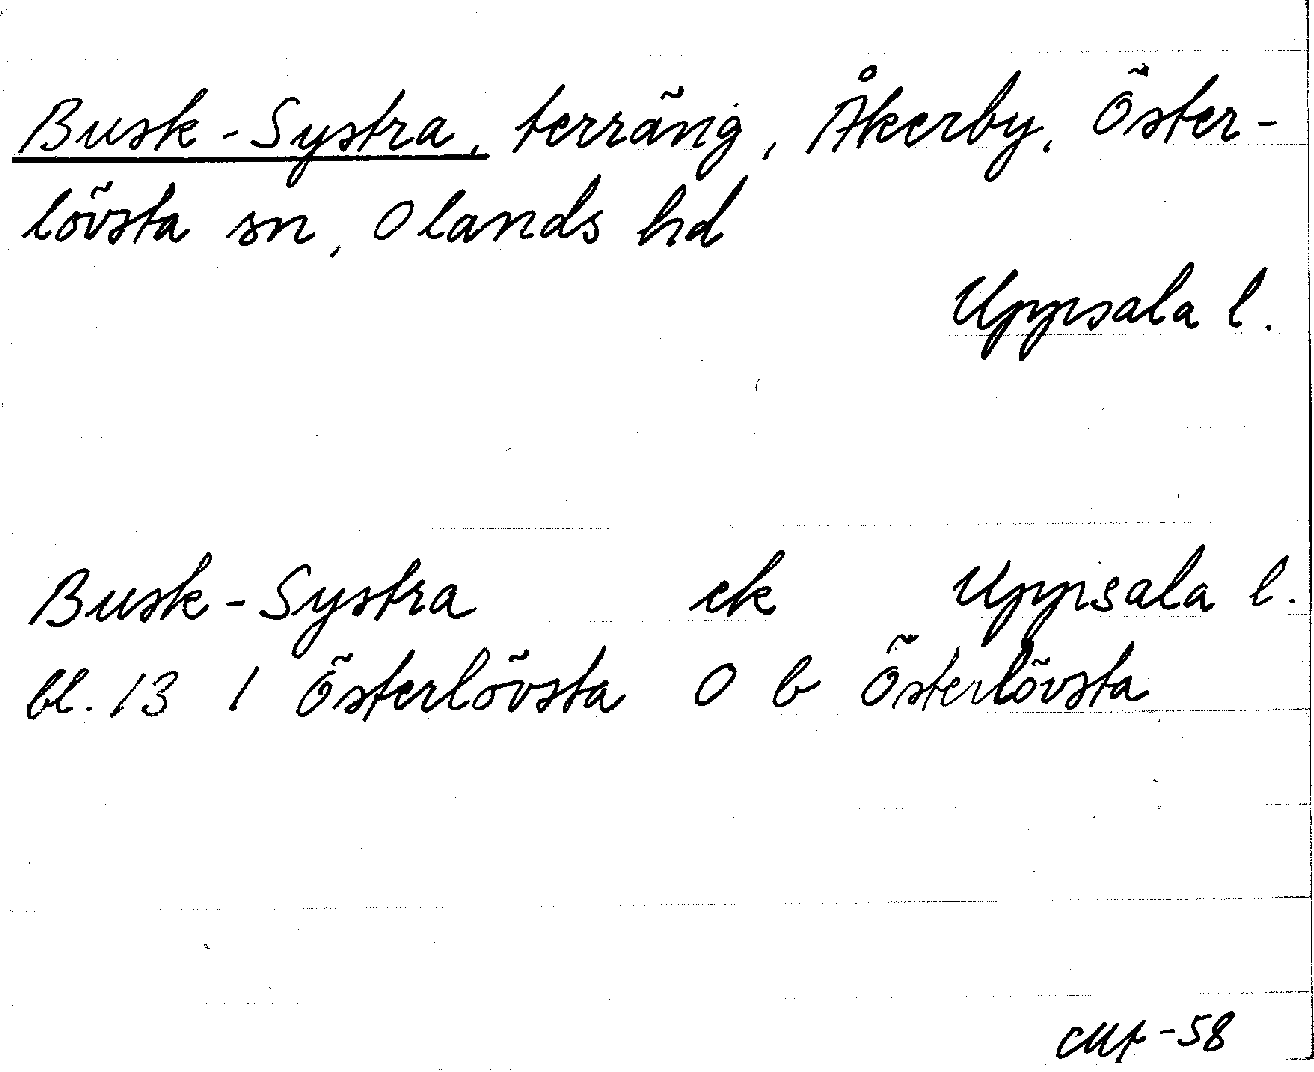 Busk-Systra, terräng, Åkerby, Öster-
lövsta sn, Olands hd
Uppsala l.
Busk-Systra ek Uppsala l.
bl. 13 1 Österlövsta O b Österlövsta
-58